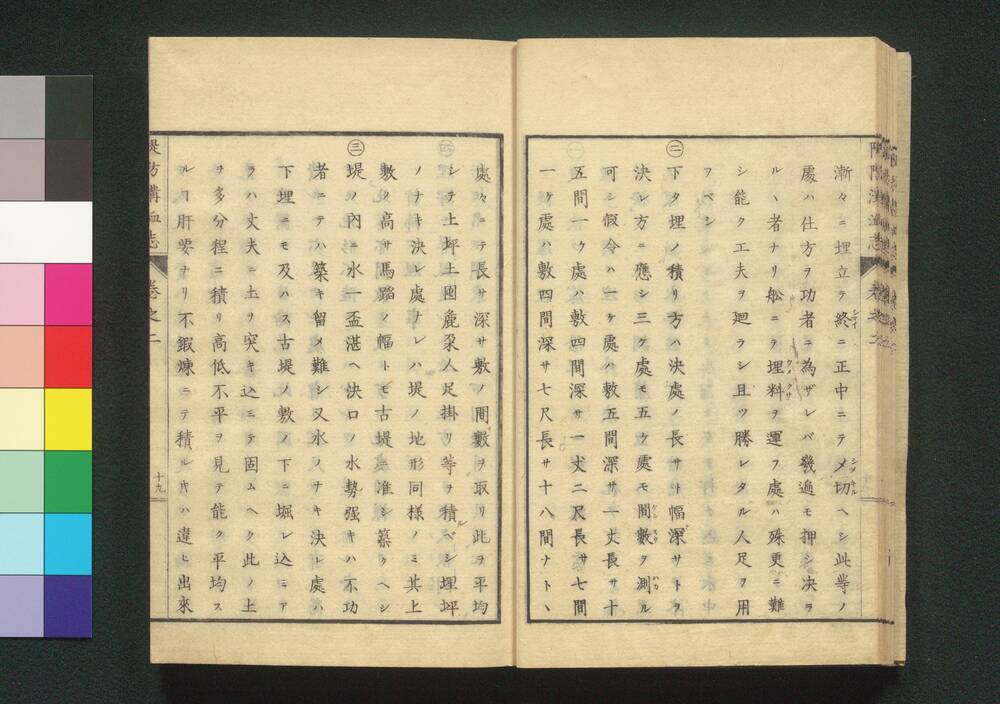 漸々ニ埋立テ終ニ正中ニテメ切ヘシ此等ノ
處ハ仕方ヲ功者ニ為ザレバ幾遍モ押シ决ラ
ルヽ者ナリ舩ニテ埋料ヲ運フ處ハ殊更ニ難
シ能ク工夫ヲ廻ラシ且ツ勝レタル人足ヲ用
フベシ
㊁下タ埋ノ積リ方ハ决處ノ長サト幅深サトヲ
决レ方ニ應シ三ケ處モ五ケ處モ間數ヲ測ル
可シ假令ハ一ケ處ハ敷五間深サ一丈長サ十
五間一ケ處ハ敷四間深サ一丈二尺長サ七間
一ケ處ハ敷四間深サ七尺長サ十八間ナトヽ
處々ニテ長サ深サ敷ノ間數ヲ取リ此ヲ平均
シテ土坪土囲麁朶人足掛リ等ヲ積ルベシ埋坪
ノナキ决レ處ナレハ堤ノ地形同様ノミ其上
敷ノ高サ馬蹈ノ幅トモ古堤ニ准シ築クヘシ
㊂堤ノ内ニ水一盃湛ヘ决口ノ水勢强キハ不功
者ニテハ築キ留メ難シ又水ノナキ决レ處ハ
下埋ニモ及ハス古堤ノ敷ノ下ニ堀レ込ミア
ラハ丈夫ニ土ヲ突キ込ミテ固ムヘク此ノ土
ヲ多分程ニ積リ高低不平ヲ見テ能ク平均ス
ル丁肝要ナリ不鍛煉ニテ積ル片ハ違ヒ出來
堤防溝洫志
卷之二
十九